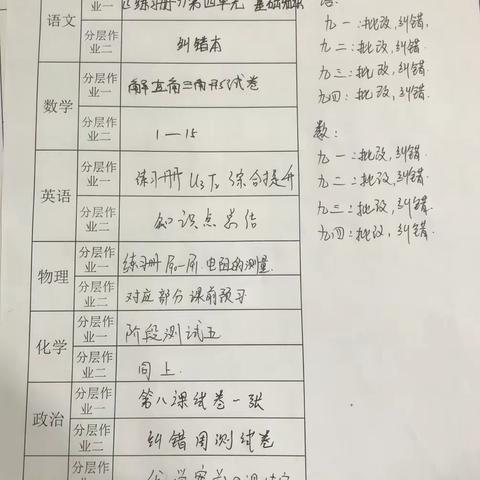 语文
业一
练习册 第四单元 基础知识
分层作业二
纠错本
数学
分层作业一
解直角三角形试卷
分层作业二
1—15
英语
分层作业一
练习册 U3 T2 综合提升
分层作业二
知识点总结
物理
分层作业一
练习册 电阻的测量
分层作业二
对应部分课前预习
化学
分层作业一
阶段测试五
分层作业二
同上
政治
分层作业一
第八课试卷一张
分层作业二
纠错周测试卷
分层作
语:
九一:批改,纠错.
九二:批改,纠错.
九三:批改,纠错.
九四:批改,纠错.
数:
九一:批改,纠错.
九二:批改,纠错.
九三:批改,纠错.
九四:批改,纠错.